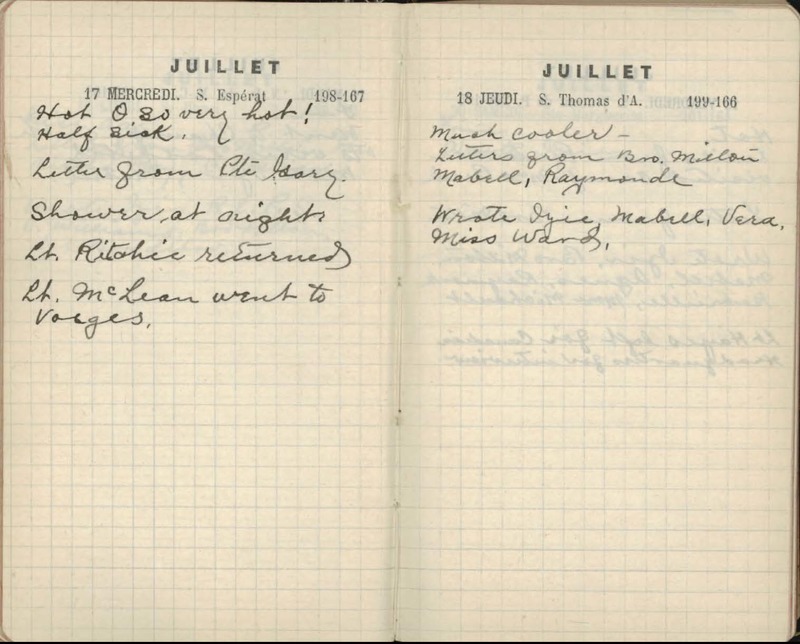 JUILLET
17 MERCREDI. S. Espérat 198-167
Hot O so very hot!
Half sick.
Letter from Pte Gary.
Shower at night.
Lt. Ritchie returned
Lt. McLean went to
Vosges.
JUILLET
18 JEUDI. S. Thomas d'A. 199-166
Much cooler -
Letters from Bro. Milton
Mabell, Raymonde
Wrote Izie, Mabell, Vera,
Miss Ward,